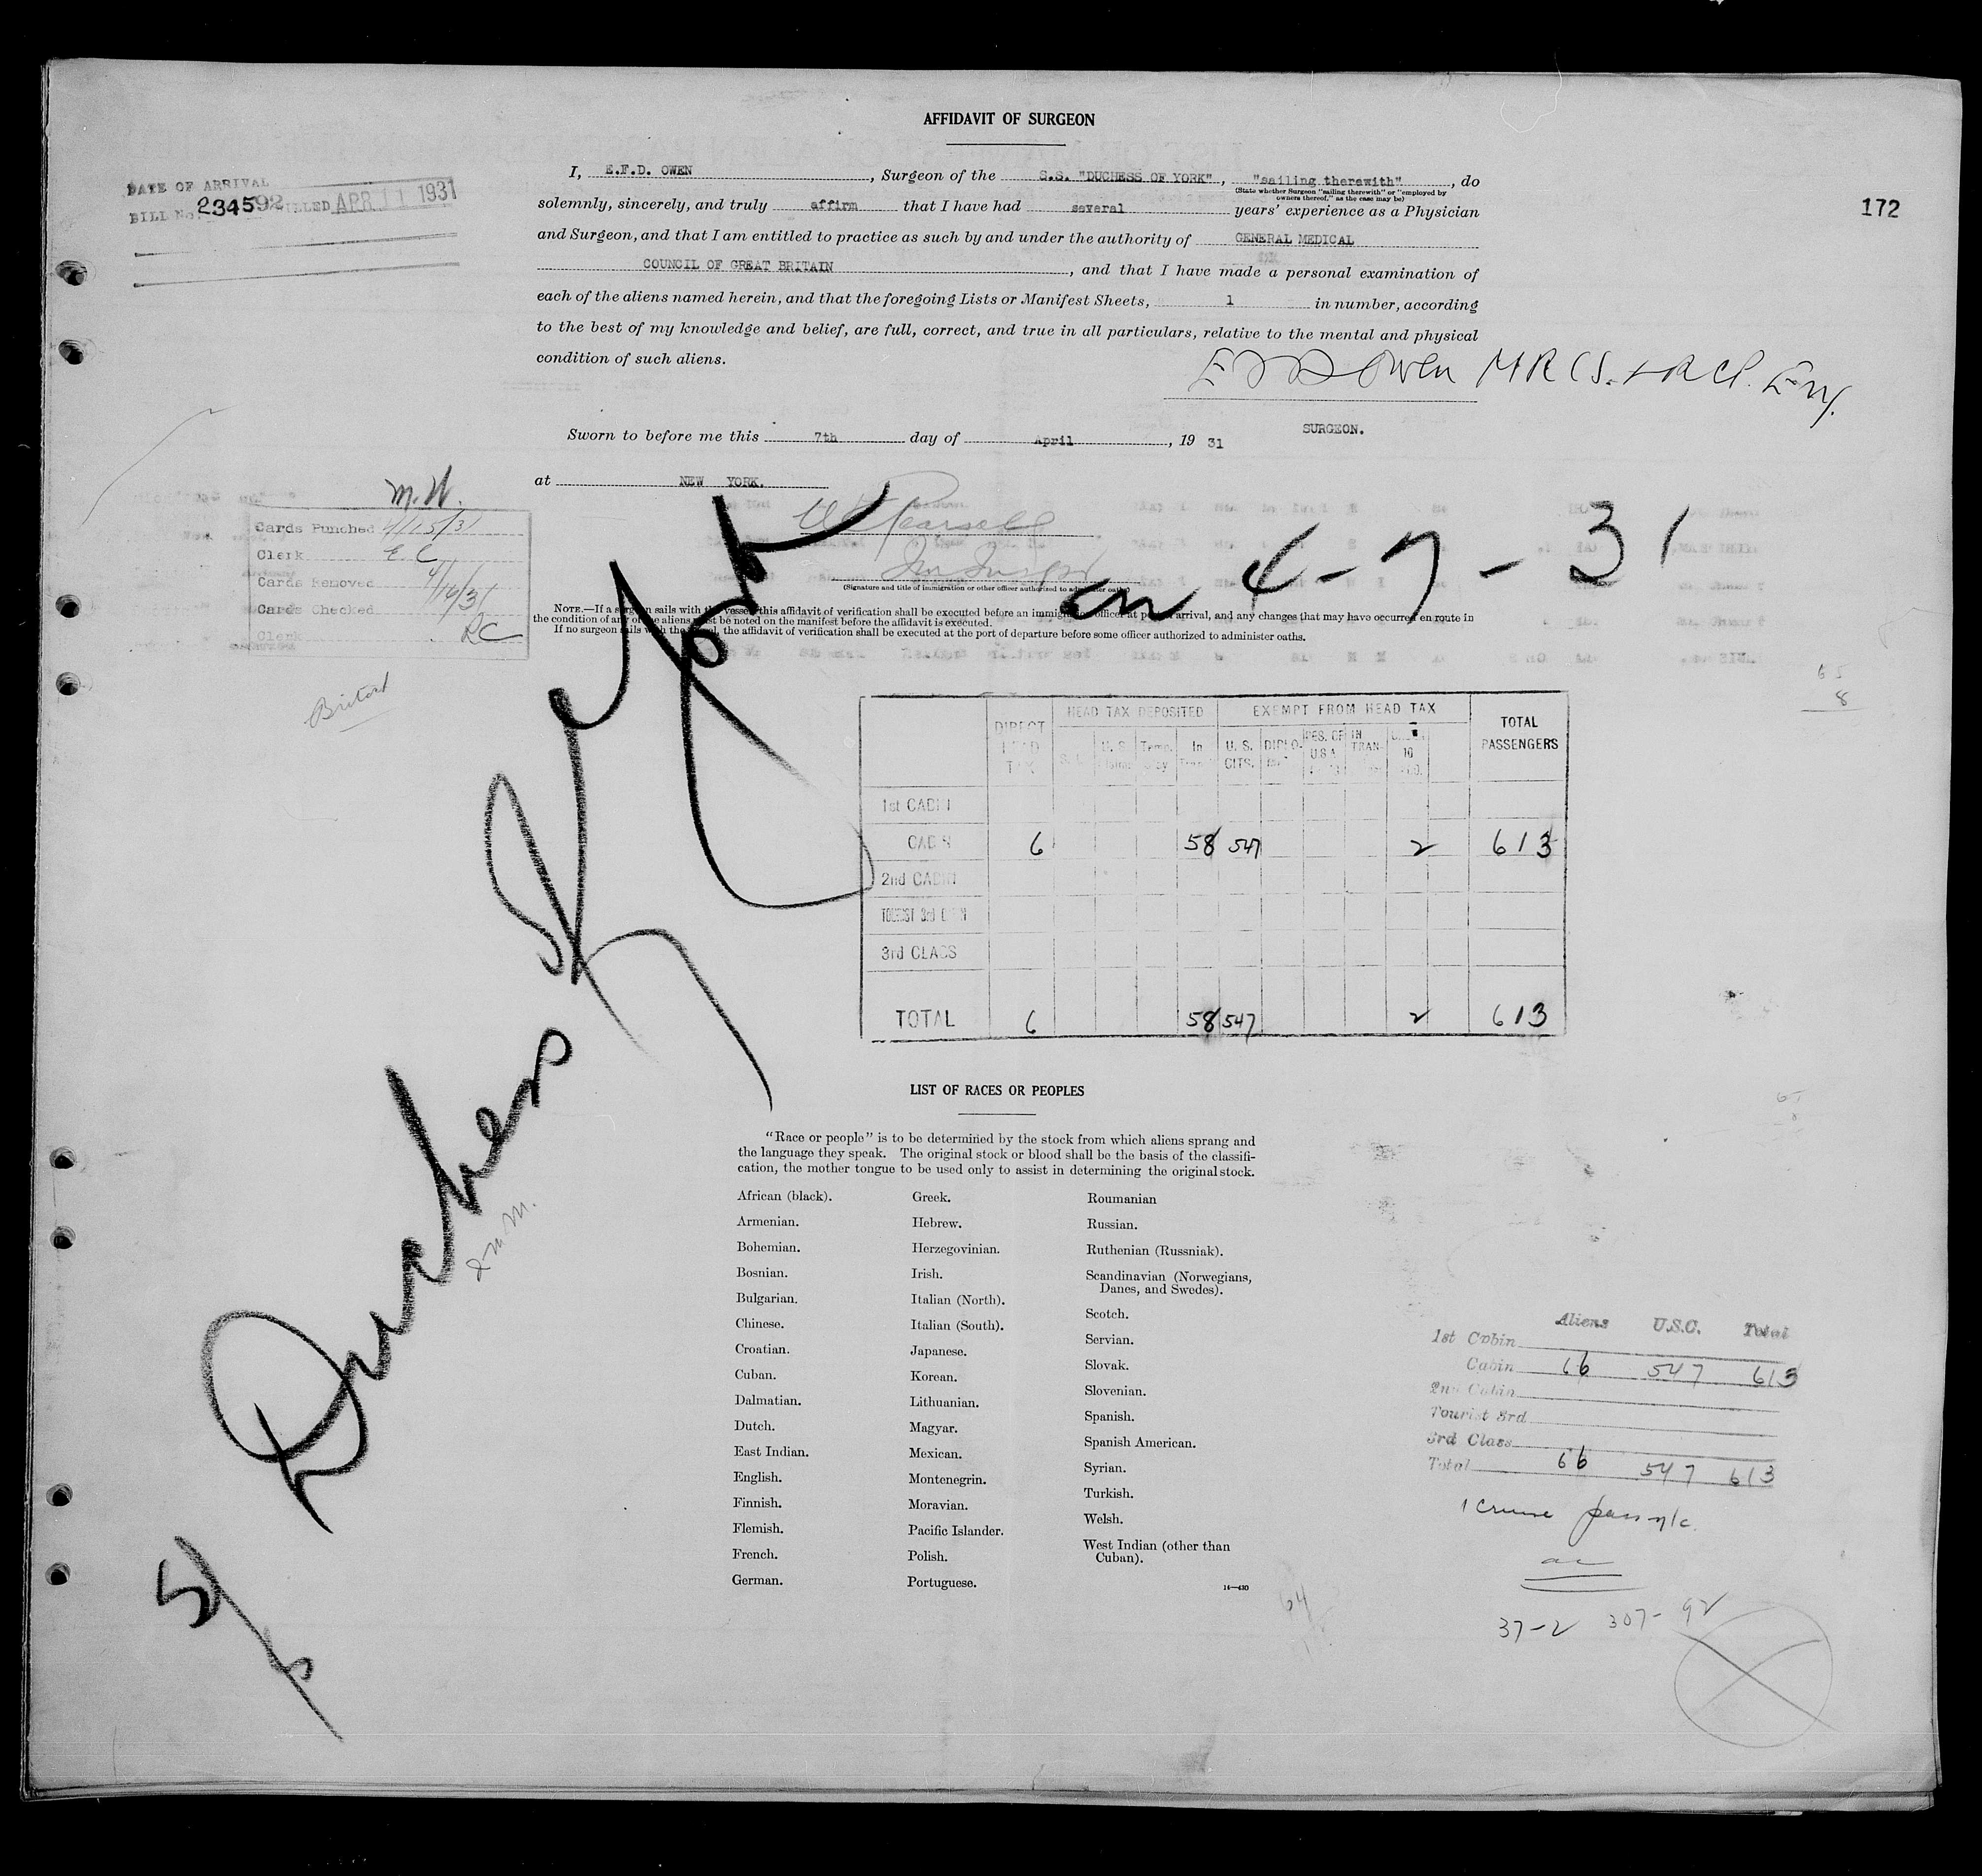 AFFIDAVIT OF SURGEON
DATE OF ARRIVAL
BILL No. 234592 BILLED APR 11 1931
172
I, E.F.D. OWEN, Surgeon of the S.S. "DUCHESS OF YORK", "sailing therewith", do
(State whether Surgeon "sailing therewith" or "employed by
owners thereof," as the case may be)
solemnly, sincerely, and truly affirm that I have had several years' experience as a Physician
and Surgeon, and that I am entitled to practice as such by and under the authority of GENERAL MEDICAL
COUNCIL OF GREAT BRITAIN, and that I have made a personal examination of
each of the aliens named herein, and that the foregoing Lists or Manifest Sheets, 1 in number, according
to the best of my knowledge and belief, are full, correct, and true in all particulars, relative to the mental and physical
condition of such aliens.
Owen MRCS. LRCP. Eng.
SURGEON.
Sworn to before me this 7th day of April, 19 31
at NEW YORK.
(Signature and title of immigration or other officer authorized to administer oaths)
M.W.
Cards Punched 4/15/31
Clerk E C
Cards Removed 4/16/31
Cards Checked
Clerk RC
NOTE.—If a surgeon sails with the vessel, this affidavit of verification shall be executed before an immigration officer at port of arrival, and any changes that may have occurred en route in
the condition of any of the aliens must be noted on the manifest before the affidavit is executed.
If no surgeon sails with the vessel, the affidavit of verification shall be executed at the port of departure before some officer authorized to administer oaths.
S/S Duchess of York
on 4-7-31
65
8
DIRECT HEAD TAX
HEAD TAX DEPOSITED
EXEMPT FROM HEAD TAX
TOTAL PASSENGERS
Temp. In U. S. CITS. DIPLO- RES. OF U.S.A. IN TRAN- 16
1st CABIN
CABIN 6 58 547 2 613
2nd CABIN
TOURIST 3rd CABIN
3rd CLASS
TOTAL 6 58 547 2 613
LIST OF RACES OR PEOPLES
"Race or people" is to be determined by the stock from which aliens sprang and
the language they speak. The original stock or blood shall be the basis of the classifi-
cation, the mother tongue to be used only to assist in determining the original stock.
African (black).
Armenian.
Bohemian.
Bosnian.
Bulgarian.
Chinese.
Croatian.
Cuban.
Dalmatian.
Dutch.
East Indian.
English.
Finnish.
Flemish.
French.
German.
Greek.
Hebrew.
Herzegovinian.
Irish.
Italian (North).
Italian (South).
Japanese.
Korean.
Lithuanian.
Magyar.
Mexican.
Montenegrin.
Moravian.
Pacific Islander.
Polish.
Portuguese.
Roumanian
Russian.
Ruthenian (Russniak).
Scandinavian (Norwegians,
Danes, and Swedes).
Scotch.
Servian.
Slovak.
Slovenian.
Spanish.
Spanish American.
Syrian.
Turkish.
Welsh.
West Indian (other than
Cuban).
14—430
Aliens U.S.C. Total
1st Cabin
Cabin 66 547 613
2nd Cabin
Tourist 3rd
3rd Class
Total 66 547 613
1 cruise
64
37-2 307-92